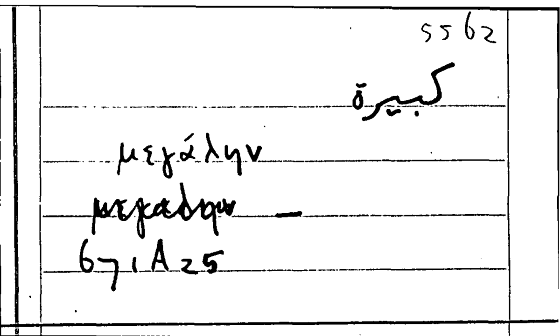 5562
كبيرة
μεγάλην
671A25